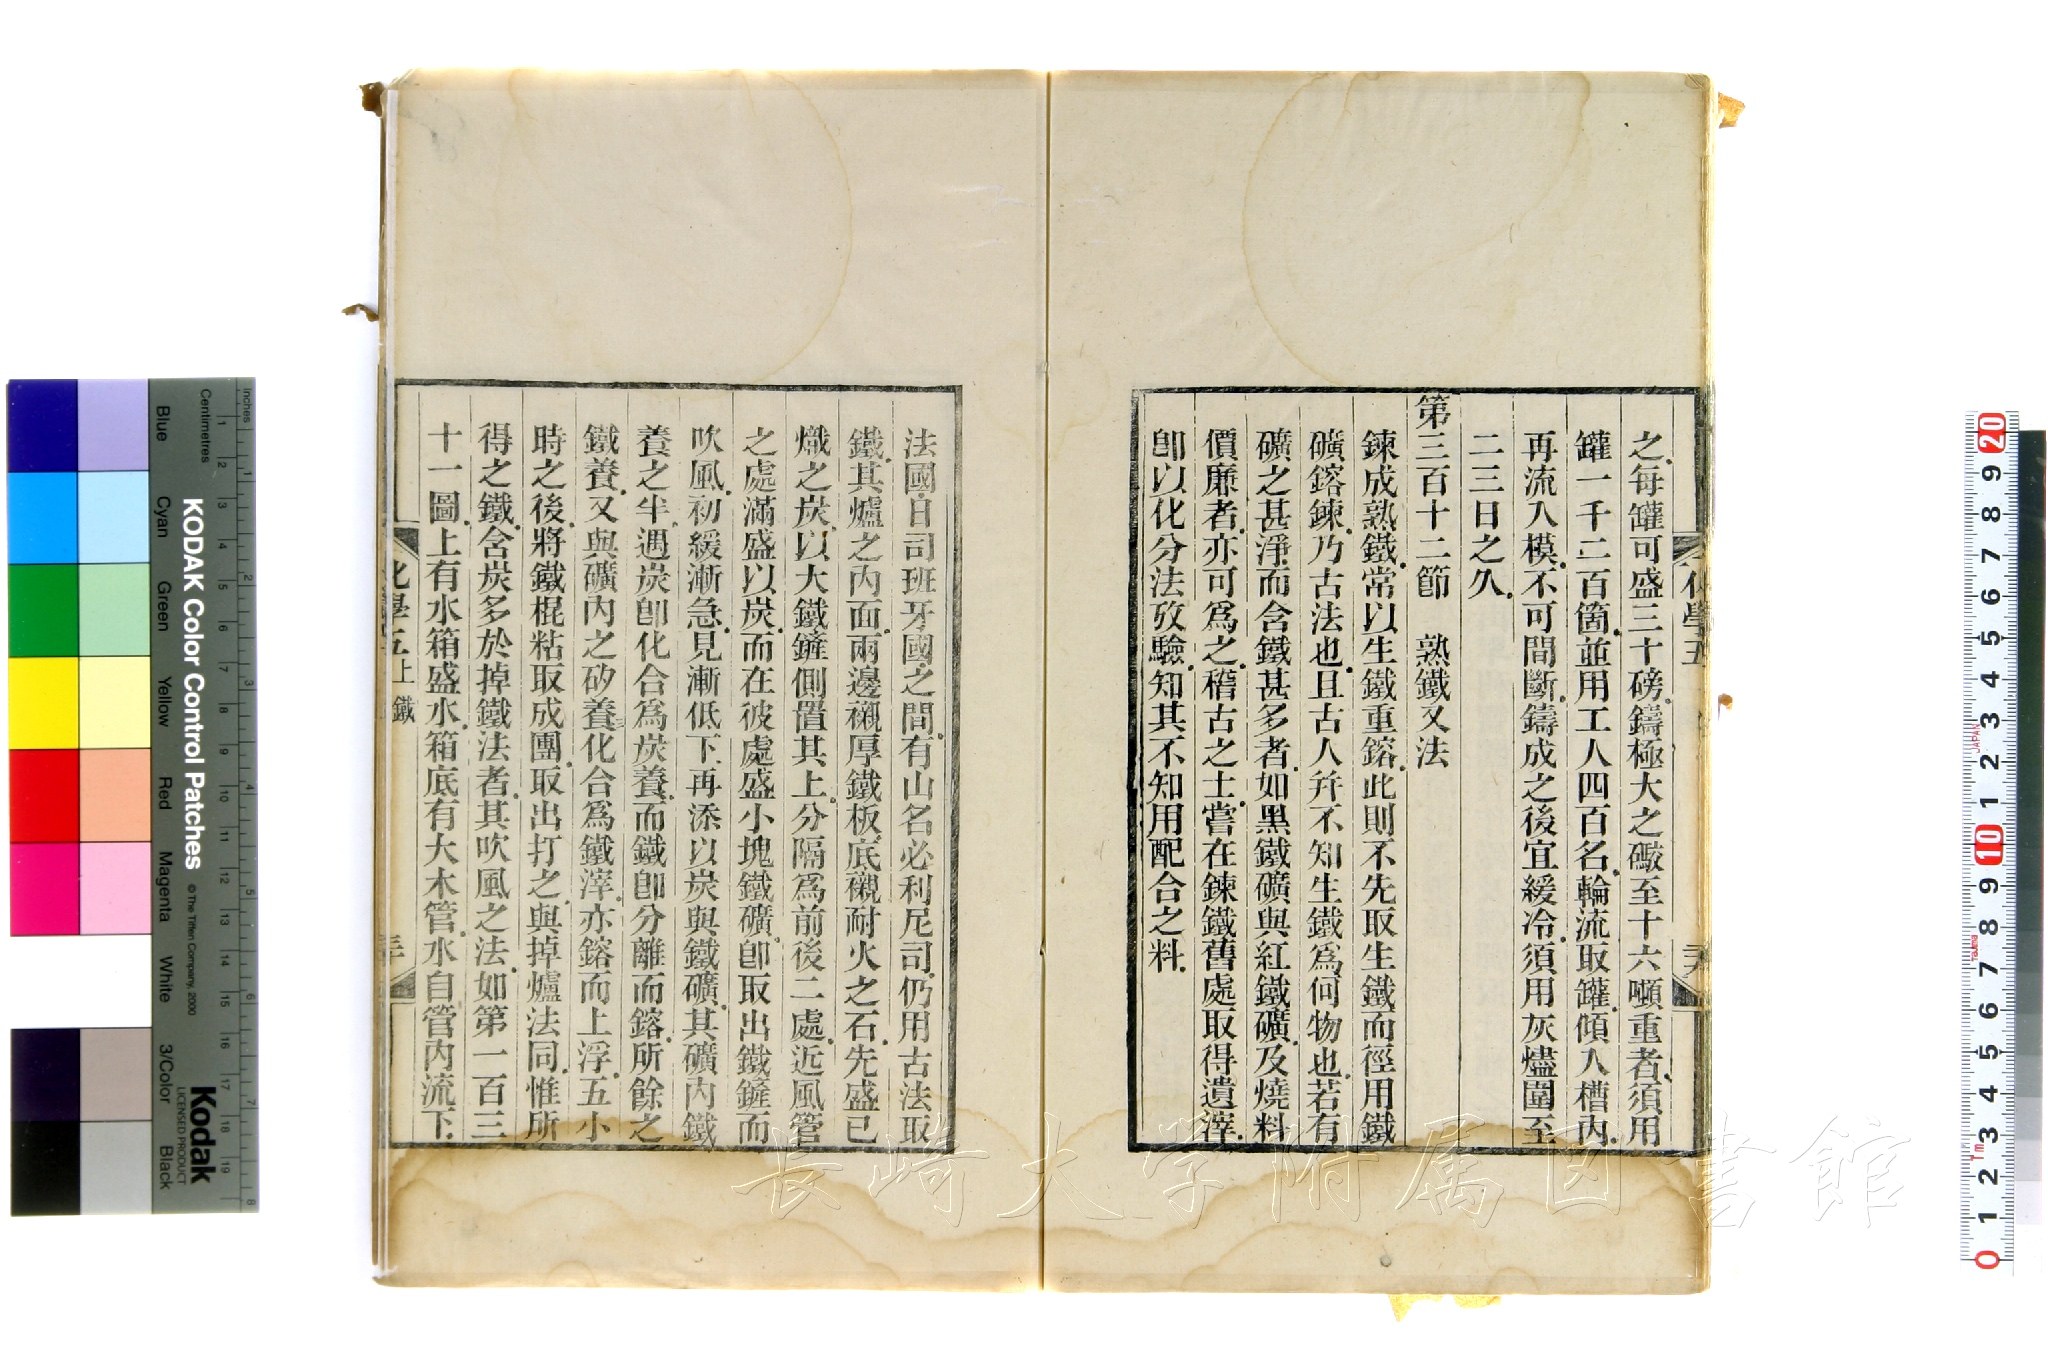 之每罐可盛三十磅鑄極大之礮至十六噸重者須用
罐一千二百箇並用工人四百名輪流取罐傾入槽內
再流入模不可間斷鑄成之後宜緩冷須用灰燼圍至
二三日之久
第三百十二節　熟鐵又法
鍊成熟鐵常以生鐵重鎔此則不先取生鐵而徑用鐵
礦鎔鍊乃古法也且古人幷不知生鐵爲何物也若有
礦之甚淨而含鐵甚多者如黑鐵礦與紅鐵礦及燒料
價廉者亦可爲之稽古之士嘗在鍊鐵舊處取得遺滓
卽以化分法攷驗知其不知用配合之料
法國日司班牙國之間有山名必利尼司仍用古法取
鐵其爐之內面兩邊襯厚鐵板底襯耐火之石先盛已
熾之炭以大鐵鏟側置其上分隔爲前後二處近風管
之處滿盛以炭而在彼處盛小塊鐵礦卽取出鐵鏟而
吹風初緩漸急見漸低下再添以炭與鐵礦其礦內鐵
養之半遇炭卽化合爲炭養而鐵卽分離而鎔所餘之
鐵養又與礦內之矽養三化合爲鐵滓亦鎔而上浮五小
時之後將鐵棍粘取成團取出打之與掉爐法同惟所
得之鐵含炭多於掉鐵法者其吹風之法如第一百三
十一圖上有水箱盛水箱底有大木管水自管內流下
化學五上　鐵
三十
長崎大学附属図書館
KODAK Color Control Patches
© The Tiffen Company, 2000
Kodak
LICENSED PRODUCT
Inches
Centimetres
Blue
Cyan
Green
Yellow
Red
Magenta
White
3/Color
Black